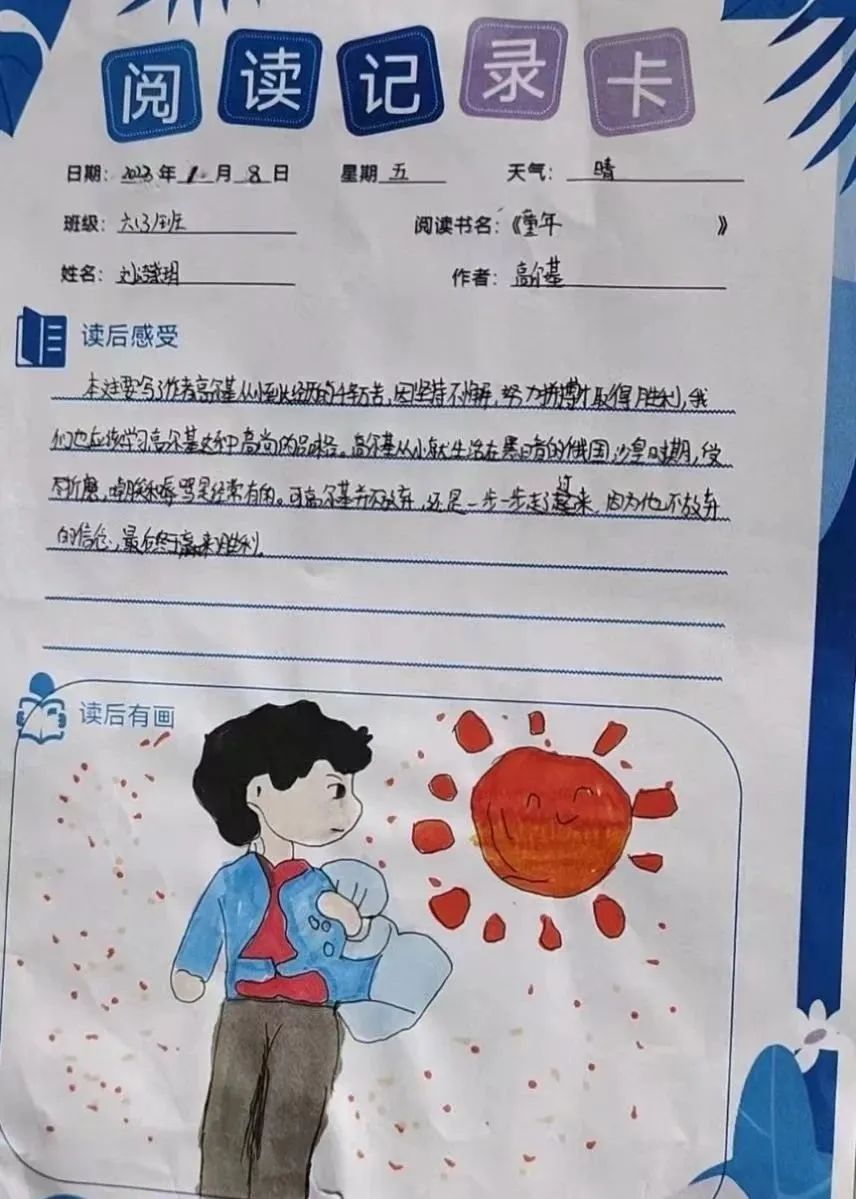 阅读记录卡
日期：2023年1月8日 星期五 天气：晴
班级：六(3)班 阅读书名：《童年》
姓名： 作者：高尔基
读后感受
本主要写了作者高尔基从小到大经历的千辛万苦，因坚持不懈，努力拼搏才取得胜利，我
们也应该学习高尔基这种高尚的品格。高尔基从小就生活在黑暗的俄国沙皇时期，受
尽折磨，嘲笑和辱骂是经常有的。可高尔基并不放弃，还是一步一步走了过来，因为他不放弃
的信念，最后终于赢来胜利。
读后有画